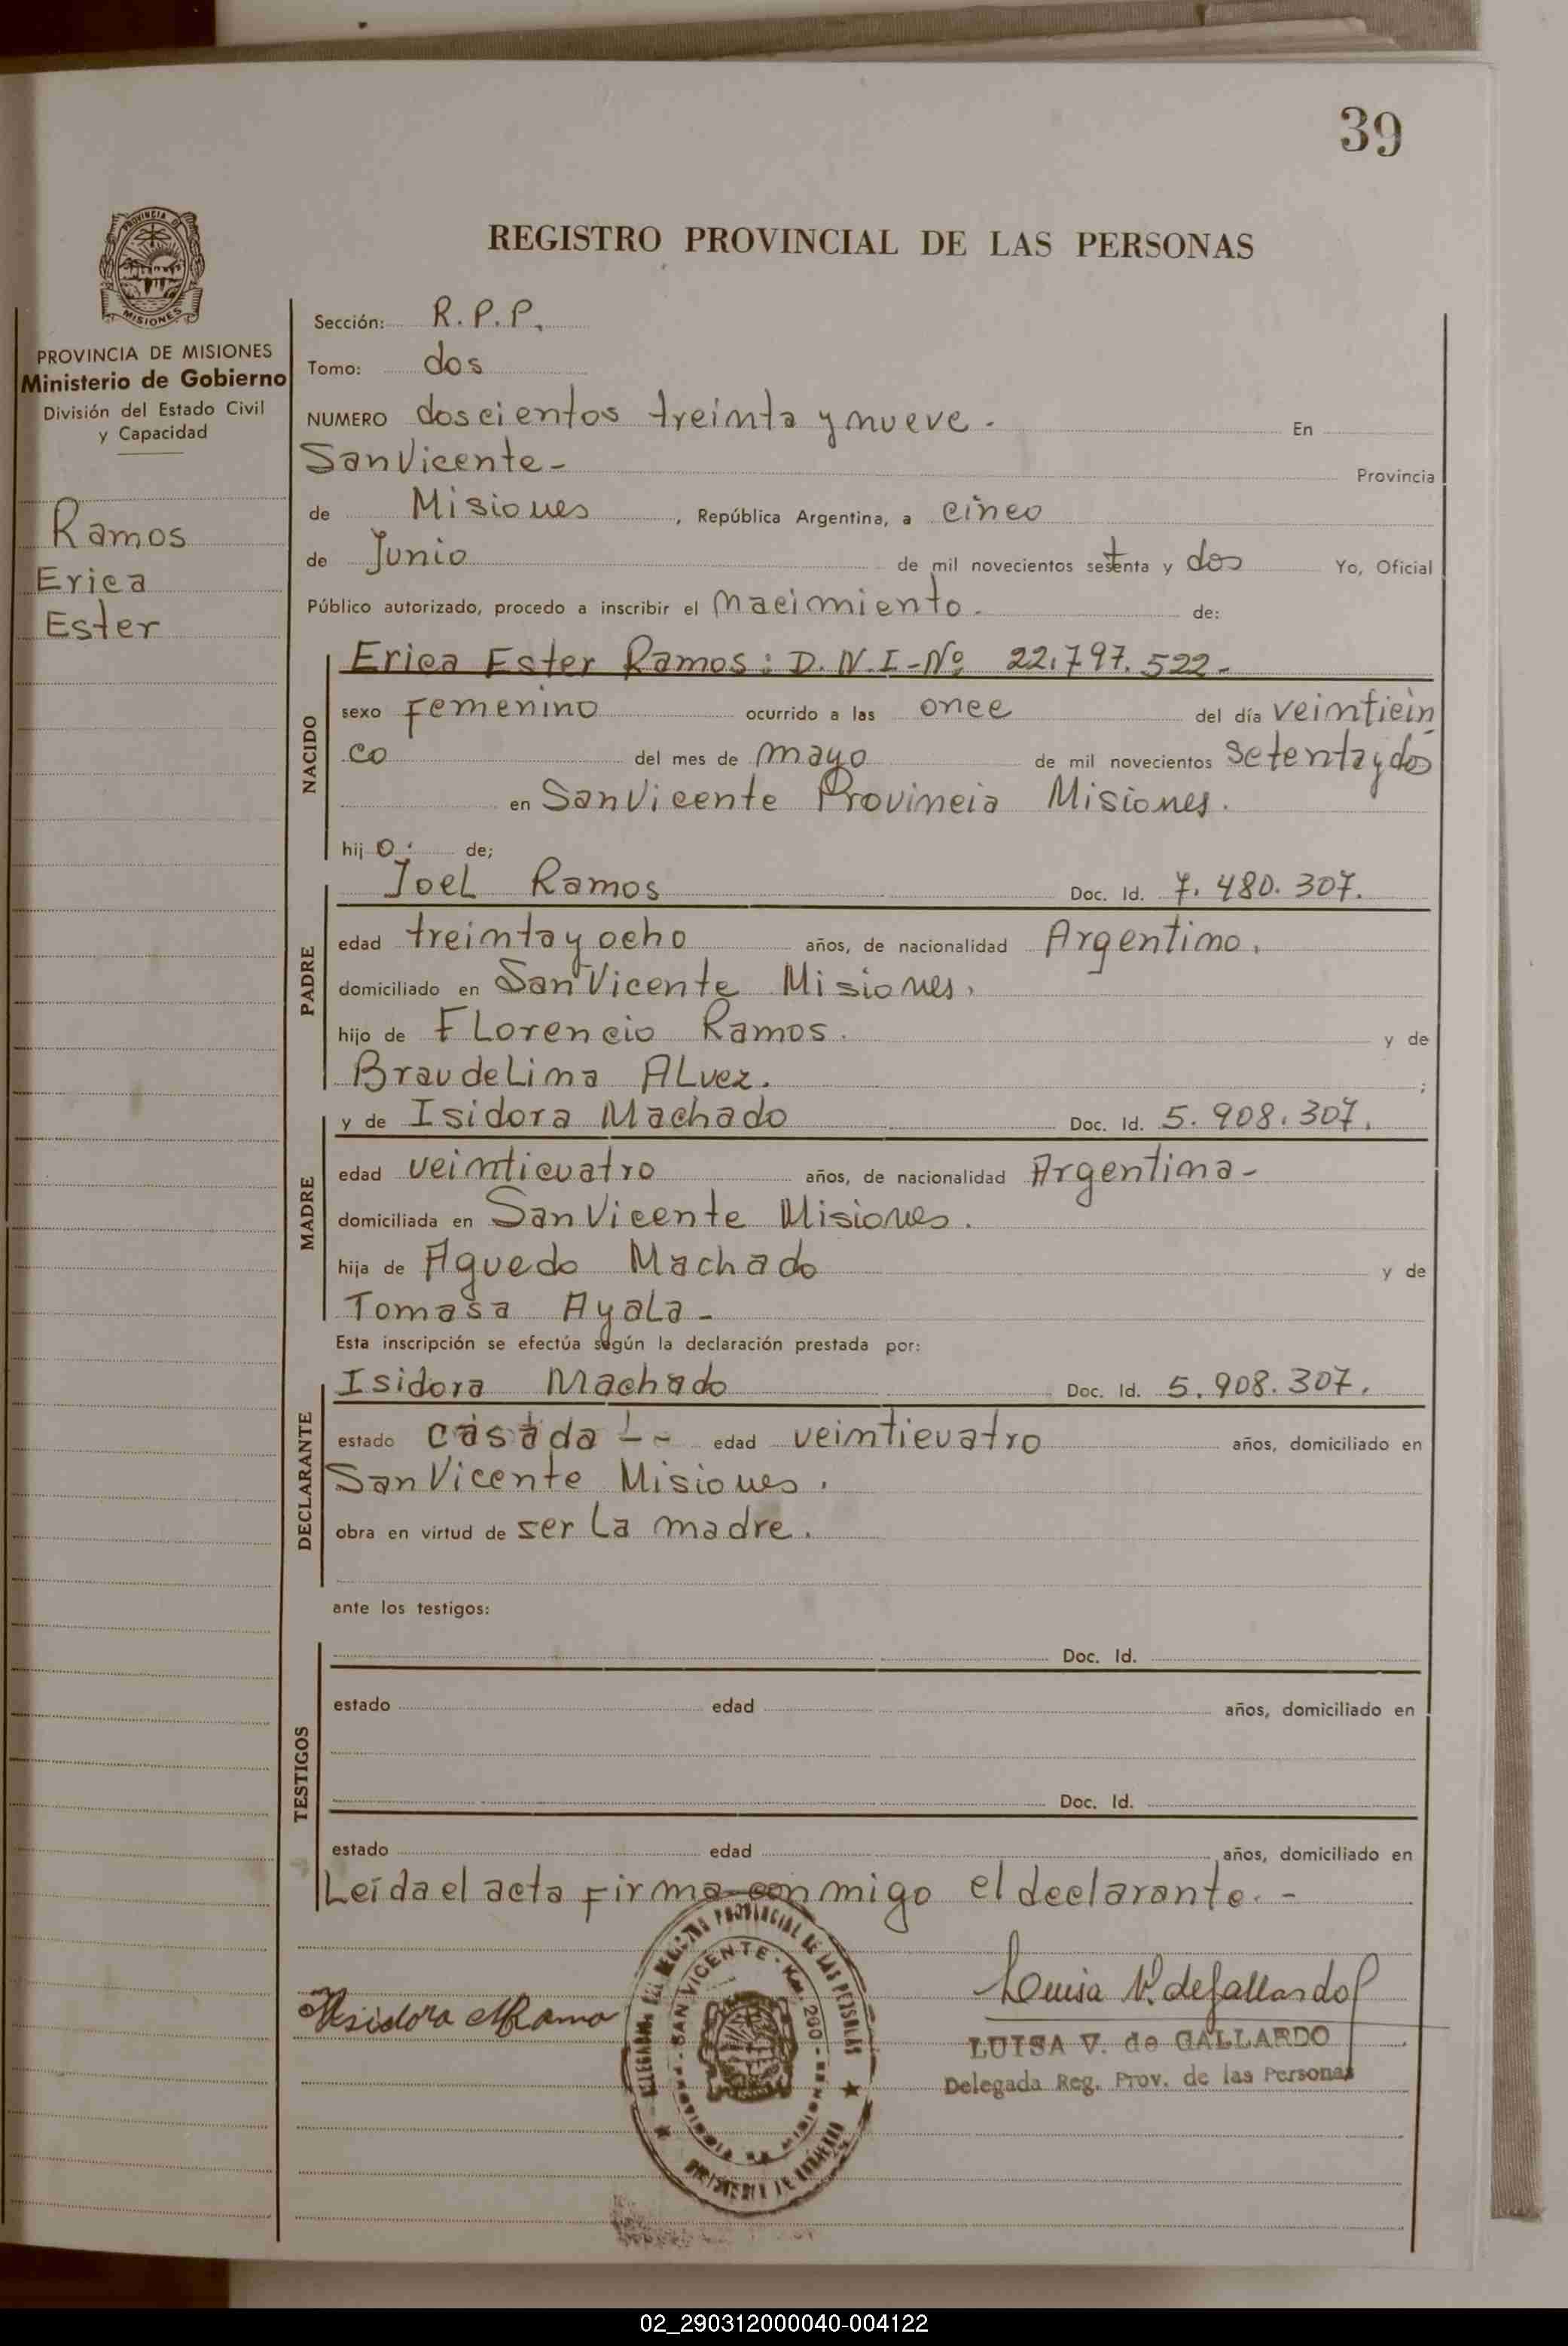 39
REGISTRO PROVINCIAL DE LAS PERSONAS
PROVINCIA DE
MISIONES
PROVINCIA DE MISIONES
Ministerio de Gobierno
División del Estado Civil
y Capacidad
Ramos
Erica
Ester
Sección: R.P.P.
Tomo: dos
NUMERO doscientos treinta y nueve. En
San Vicente- Provincia
de Misiones, República Argentina, a cinco
de Junio de mil novecientos setenta y dos Yo, Oficial
Público autorizado, procedo a inscribir el nacimiento. de:
NACIDO
Erica Ester Ramos: D.N.I-Nº 22.797.522-
sexo Femenino ocurrido a las once del día veintiein
co del mes de mayo de mil novecientos setenta y dos
en San Vicente Provincia Misiones.
hijo. de;
PADRE
Joel Ramos Doc. Id. 7.480.307.
edad treinta y ocho años, de nacionalidad Argentino.
domiciliado en San Vicente Misiones.
hijo de Florencio Ramos. y de
BraudeLima ALvez. ;
MADRE
y de Isidora Machado Doc. Id. 5.908.307.
edad veinticuatro años, de nacionalidad Argentina-
domiciliada en San Vicente Misiones.
hija de Aguedo Machado y de
Tomasa Ayala-
Esta inscripción se efectúa según la declaración prestada por:
DECLARANTE
Isidora Machado Doc. Id. 5.908.307.
estado casada -- edad veinticuatro años, domiciliado en
San Vicente Misiones.
obra en virtud de ser la madre.
ante los testigos:
TESTIGOS
Doc. Id.
estado edad años, domiciliado en
Doc. Id.
estado edad años, domiciliado en
Leída el acta firma conmigo el declarante.-
Luisa V. de Gallardo
LUISA V. de GALLARDO
Delegada Reg. Prov. de las Personas
PROVINCIAL DE LAS PERSONAS
SAN VICENTE - Km. 260 -
02_290312000040-004122